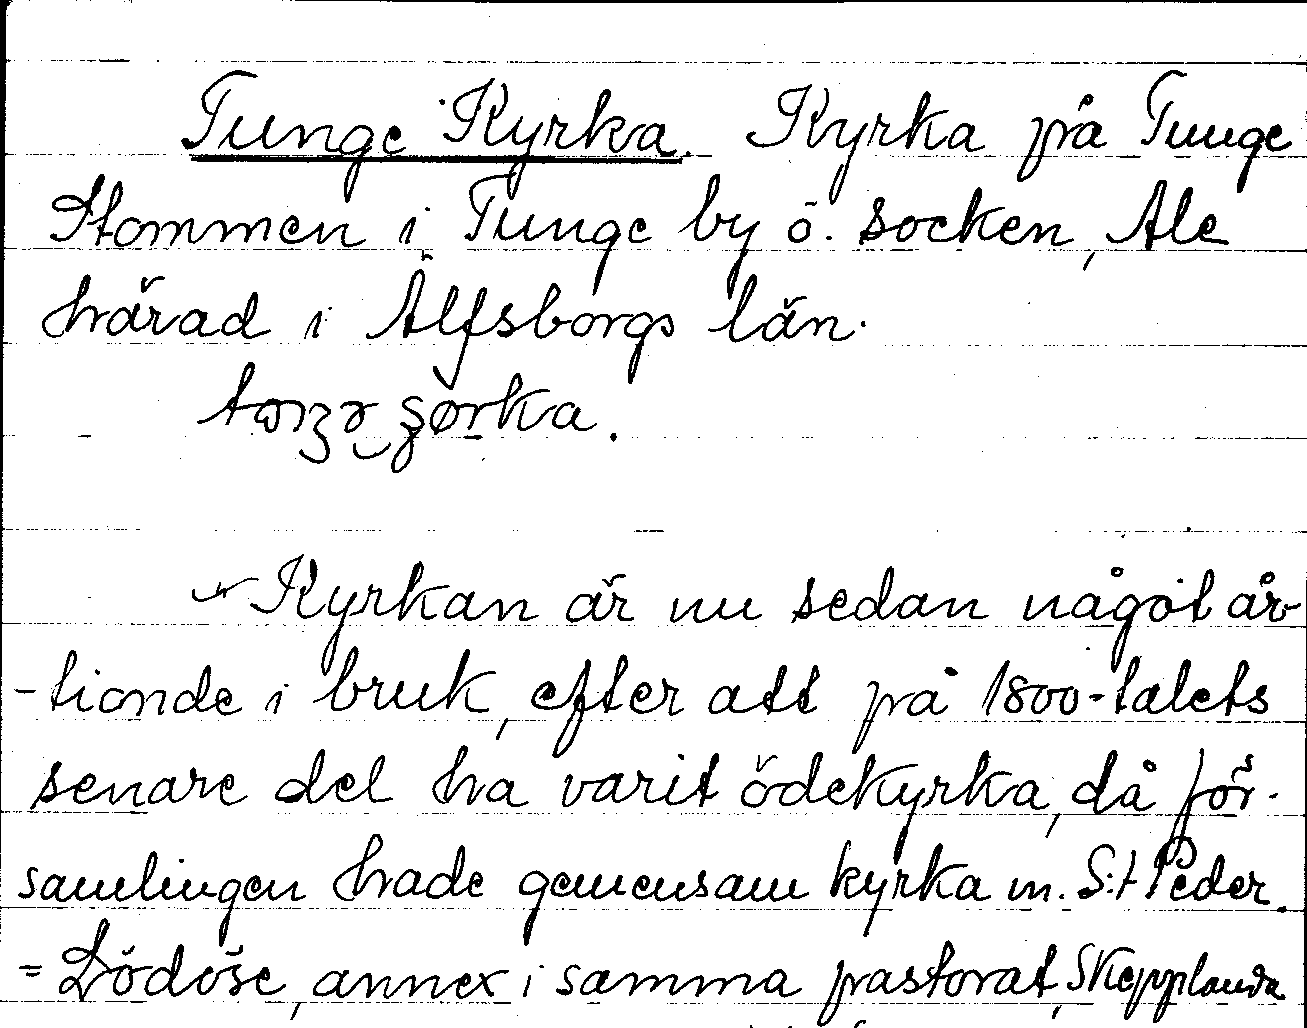 Tunge Kyrka. Kyrka på Tunge
Stommen i Tunge by ö. socken, Ale
härad i Älfsborgs län.
Kyrkan är nu sedan något år-
-tionde i bruk, efter att på 1800-talets
senare del ha varit ödekyrka, då för-
samlingen hade gemensam kyrka m. S:t Peder.
= Lödöse, annex i samma pastorat, Skepplanda